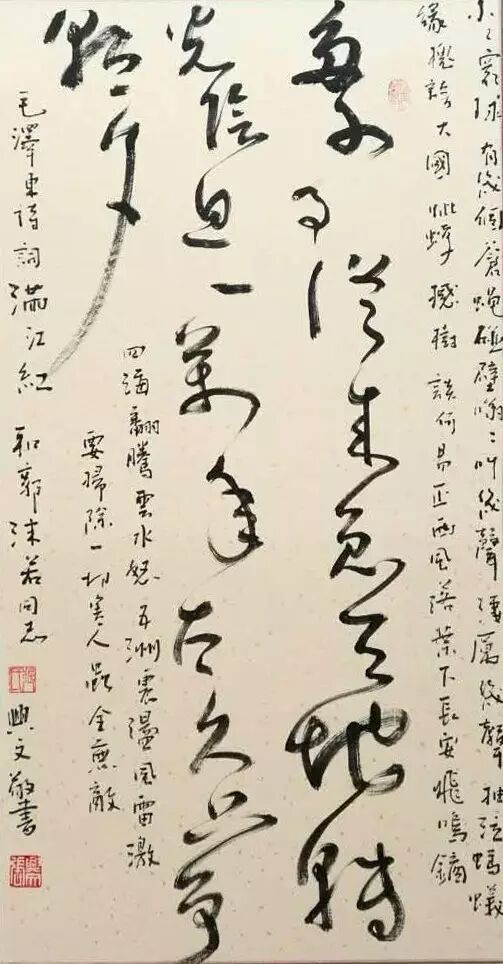 小〻寰球有幾個蒼蠅碰壁嗡〻叫幾聲淒厲幾聲抽泣螞蟻
緣槐誇大國蚍蜉撼樹談何易正西風落葉下長安飛鳴鏑
多少事從來急天地轉
光陰迫一萬年太久只爭
朝夕
四海翻騰雲水怒五洲震盪風雷激
要掃除一切害人蟲全無敵
毛澤東詩詞滿江紅 和郭沫若同志 興文敬書